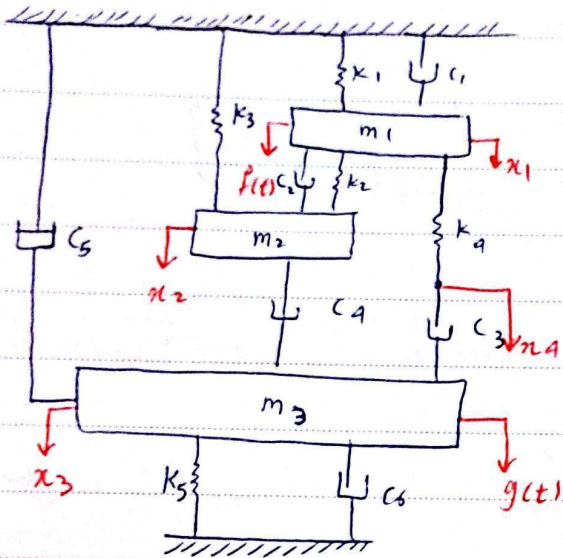 K1
C1
K3
m1
x1
f(t)
C2
K2
m2
K4
C5
x2
C4
C3
x4
m3
x3
K5
C6
g(t)